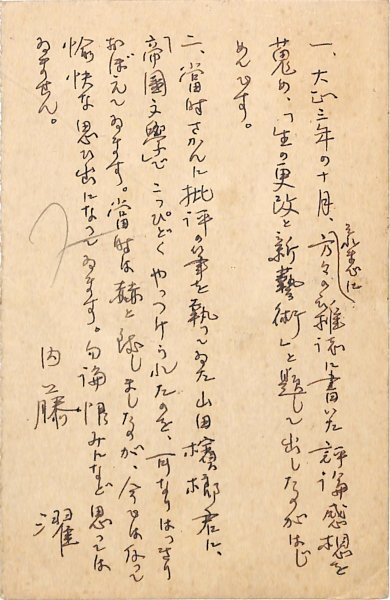 一、大正三年の十月、それまでに方々の雑誌に書いた評論感想を
蒐め、「生の更改と新藝術」と題して出したのがはじ
めてです。
二、當時さかんに批評の筆を執つてゐた山田檳榔君に、
「帝國文學」でこつぴどくやつつけられたのを、可なりはつきり
おぼえてゐます。當時は赫と致しましたのが、今では却つて
愉快な思ひ出になつてゐます。勿論恨みになど思つては
ゐません。
内藤 濯